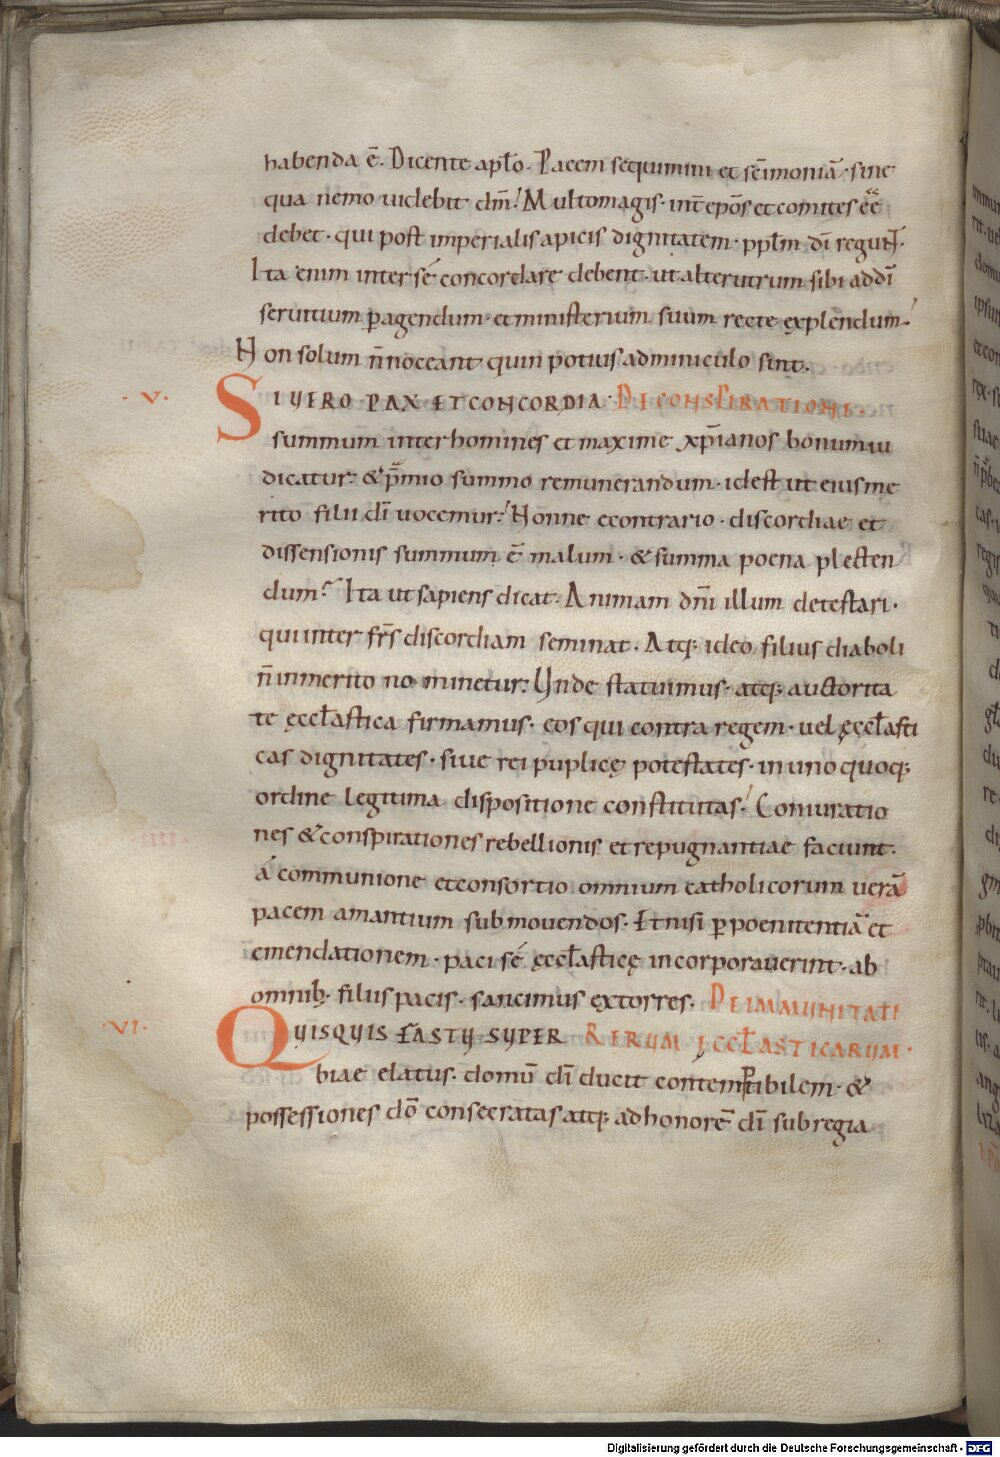 habenda ē. Dicente apłō. Pacem sequimini et sc̄imoniā. sine
qua nemo uidebit dm̄. Multomagis. int̄ epōs et comites eē
debet. qui post imperialis apicis dignitatem. pp̄lm dī regunt.
Ita enim inter sé concordare debent. ut alterutrum sibi ad dī
seruitium ꝑagendum. et ministerium suum recte explendum.
Non solum n̄ noceant quin potius adminiculo sint.
.V. SI VERO PAX ET CONCORDIA. DE CONSPIRATIONE.
summum inter homines et maxime xp̄ianos bonum iu
dicatur. & p̄mio summo remunerandum. id est ut eius me
rito filii dī uocemur. Nonne econtrario. discordiae et
dissensionis summum ē malum. & summa poena plecten
dum. Ita ut sapiens dicat. Animam dn̄i illum detestari.
qui inter fr̄s discordiam seminat. Atq; ideo filius diaboli
n̄ inmerito nominetur. Unde statuimus. atq; auctorita
te ęccłastica firmamus. eos qui contra regem. uel ęccłasti
cas dignitates. siue rei puplicę potestates. in uno quoq;
ordine legitima dispositione constitutas. Coniuratio
nes & conspirationes rebellionis et repugnantiae faciunt.
á communione et consortio omnium catholicorum uerā
pacem amantium submouendos. Et nisi ꝑ poenitentiā et
emendationem. paci sé ęccłasticę incorporauerint. ab
omnib; filiis pacis. sancimus extorres. DE IMMUNITATE
.VI. QUISQUIS FASTU SUPER RERUM ĘCCŁASTICARUM.
biae elatus. domū dī ducit contemptibilem. &
possessiones dō consecratas atq; ad honorē dī sub regia
Digitalisierung gefördert durch die Deutsche Forschungsgemeinschaft - DFG